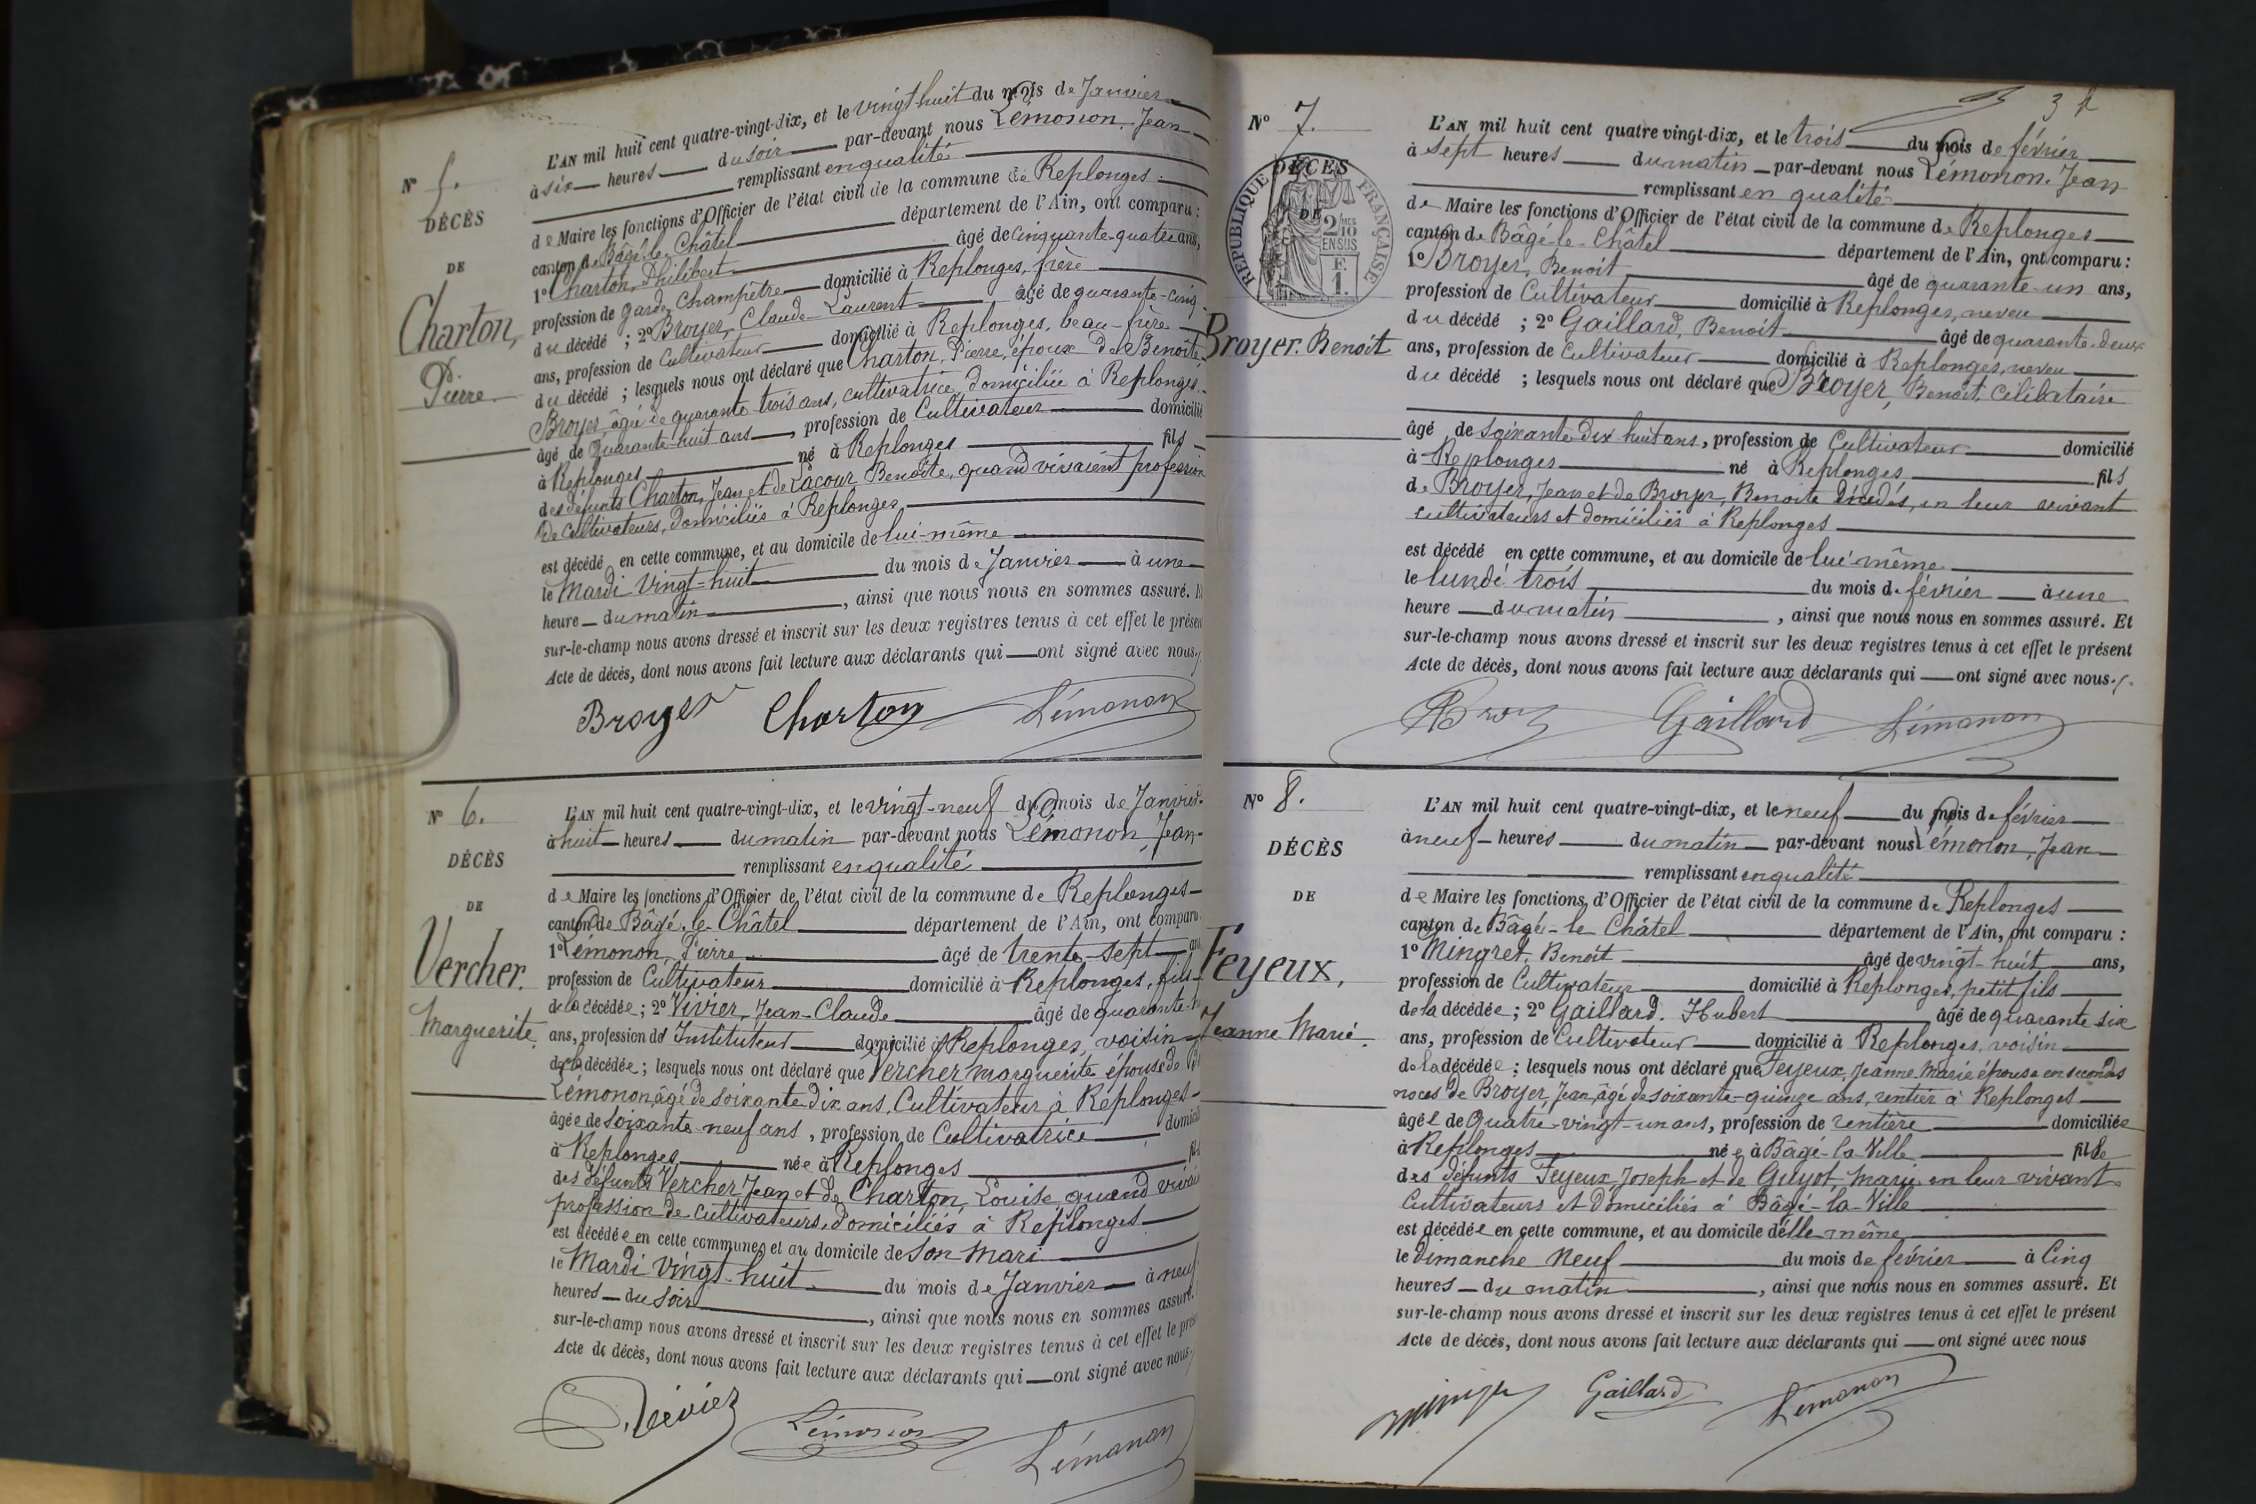 N° 5.
DÉCÈS
DE
Charton,
Pierre
L'AN mil huit cent quatre-vingt-dix, et le vingt huit du mois de Janvier
à six heures du soir par-devant nous Lémonon, Jean
remplissant en qualité
de Maire les fonctions d'Officier de l'état civil de la commune de Replonges
canton de Bâgé-le-Châtel département de l'Ain, ont comparu :
1° Charton, Philibert âgé de cinquante-quatre ans,
profession de garde champêtre domicilié à Replonges, frère
du décédé ; 2° Broyer, Claude-Laurent âgé de quarante-cinq
ans, profession de Cultivateur domicilié à Replonges, beau-frère
du décédé ; lesquels nous ont déclaré que Charton, Pierre, époux de Benoîte
Broyer, âgée de quarante trois ans, cultivatrice, domiciliée à Replonges
âgé de Quarante-huit ans, profession de Cultivateur domicilié
à Replonges né à Replonges fils
des défunts Charton, Jean et de Lacour Benoîte, quand vivaient profession
de cultivateurs, domiciliés à Replonges
est décédé en cette commune, et au domicile de lui-même
le Mardi Vingt-huit du mois de Janvier à une
heure du matin, ainsi que nous nous en sommes assuré.
sur-le-champ nous avons dressé et inscrit sur les deux registres tenus à cet effet le présen
Acte de décès, dont nous avons fait lecture aux déclarants qui ont signé avec nous
Broyer Charton Lémonon
N° 6.
DÉCÈS
DE
Vercher.
Marguerite.
L'AN mil huit cent quatre-vingt-dix, et le vingt-neuf du mois de Janvier
à huit heures du matin par-devant nous Lémonon, Jean
remplissant en qualité
de Maire les fonctions d'Officier de l'état civil de la commune de Replonges
canton de Bâgé-le-Châtel département de l'Ain, ont comparu
1° Lémonon, Pierre âgé de trente-sept
profession de Cultivateur domicilié à Replonges, fils
de la décédée ; 2° Vivier, Jean-Claude âgé de quarante
ans, profession d'Instituteur domicilié à Replonges, voisin
de la décédée ; lesquels nous ont déclaré que Vercher Marguerite épouse de
Lémonon, âgé de soixante dix ans, Cultivateur à Replonges
âgée de soixante neuf ans, profession de Cultivatrice domicilié
à Replonges née à Replonges
des défunts Vercher Jean et de Charton, Louise quand vivai
profession de cultivateurs, domiciliés à Replonges
est décédée en cette commune, et au domicile de son mari
le Mardi vingt-huit du mois de Janvier à neuf
heures du soir, ainsi que nous nous en sommes assuré.
sur-le-champ nous avons dressé et inscrit sur les deux registres tenus à cet effet le prés
Acte de décès, dont nous avons fait lecture aux déclarants qui ont signé avec nous
Vivier Lémonon Lémonon
3
N° 7.
DÉCÈS
DE
RÉPUBLIQUE FRANÇAISE
2/10 EN SUS
F. 1.
Broyer. Benoit
L'AN mil huit cent quatre vingt-dix, et le trois du mois de février
à sept heures du matin par-devant nous Lémonon, Jean
remplissant en qualité
de Maire les fonctions d'Officier de l'état civil de la commune de Replonges
canton de Bâgé-le-Châtel département de l'Ain, ont comparu :
1° Broyer, Benoit âgé de quarante-un ans,
profession de Cultivateur domicilié à Replonges, neveu
du décédé ; 2° Gaillard, Benoit âgé de quarante-deux
ans, profession de Cultivateur domicilié à Replonges, neveu
du décédé ; lesquels nous ont déclaré que Broyer, Benoit, Célibataire
âgé de soixante dix huit ans, profession de Cultivateur domicilié
à Replonges né à Replonges fils
de Broyer, Jean et de Broyer, Benoite décédés, en leur vivant
cultivateurs et domiciliés à Replonges
est décédé en cette commune, et au domicile de lui-même
le lundi trois du mois de février à une
heure du matin, ainsi que nous nous en sommes assuré. Et
sur-le-champ nous avons dressé et inscrit sur les deux registres tenus à cet effet le présent
Acte de décès, dont nous avons fait lecture aux déclarants qui ont signé avec nous
Gaillard Lémonon
N° 8.
DÉCÈS
DE
Feyeux,
Jeanne Marie.
L'AN mil huit cent quatre-vingt-dix, et le neuf du mois de février
à neuf heures du matin par-devant nous Lémonon, Jean
remplissant en qualité
de Maire les fonctions d'Officier de l'état civil de la commune de Replonges
canton de Bâgé-le-Châtel département de l'Ain, ont comparu :
1° Mingret, Benoit âgé de vingt-huit ans,
profession de Cultivateur domicilié à Replonges, petit fils
de la décédée ; 2° Gaillard, Hubert âgé de quarante six
ans, profession de Cultivateur domicilié à Replonges, voisin
de la décédée ; lesquels nous ont déclaré que Feyeux, Jeanne Marie épouse en secondes
noces de Broyer, Jean, âgé de soixante-quinze ans, rentier à Replonges
âgée de Quatre-vingt-un ans, profession de rentière domiciliée
à Replonges née à Bâgé-la-Ville fille
des défunts Feyeux Joseph et de Guyot, Marie en leur vivant
Cultivateurs et domiciliés à Bâgé-la-Ville
est décédée en cette commune, et au domicile d'elle même
le dimanche Neuf du mois de février à Cinq
heures du matin, ainsi que nous nous en sommes assuré. Et
sur-le-champ nous avons dressé et inscrit sur les deux registres tenus à cet effet le présent
Acte de décès, dont nous avons fait lecture aux déclarants qui ont signé avec nous
Gaillard Lémonon